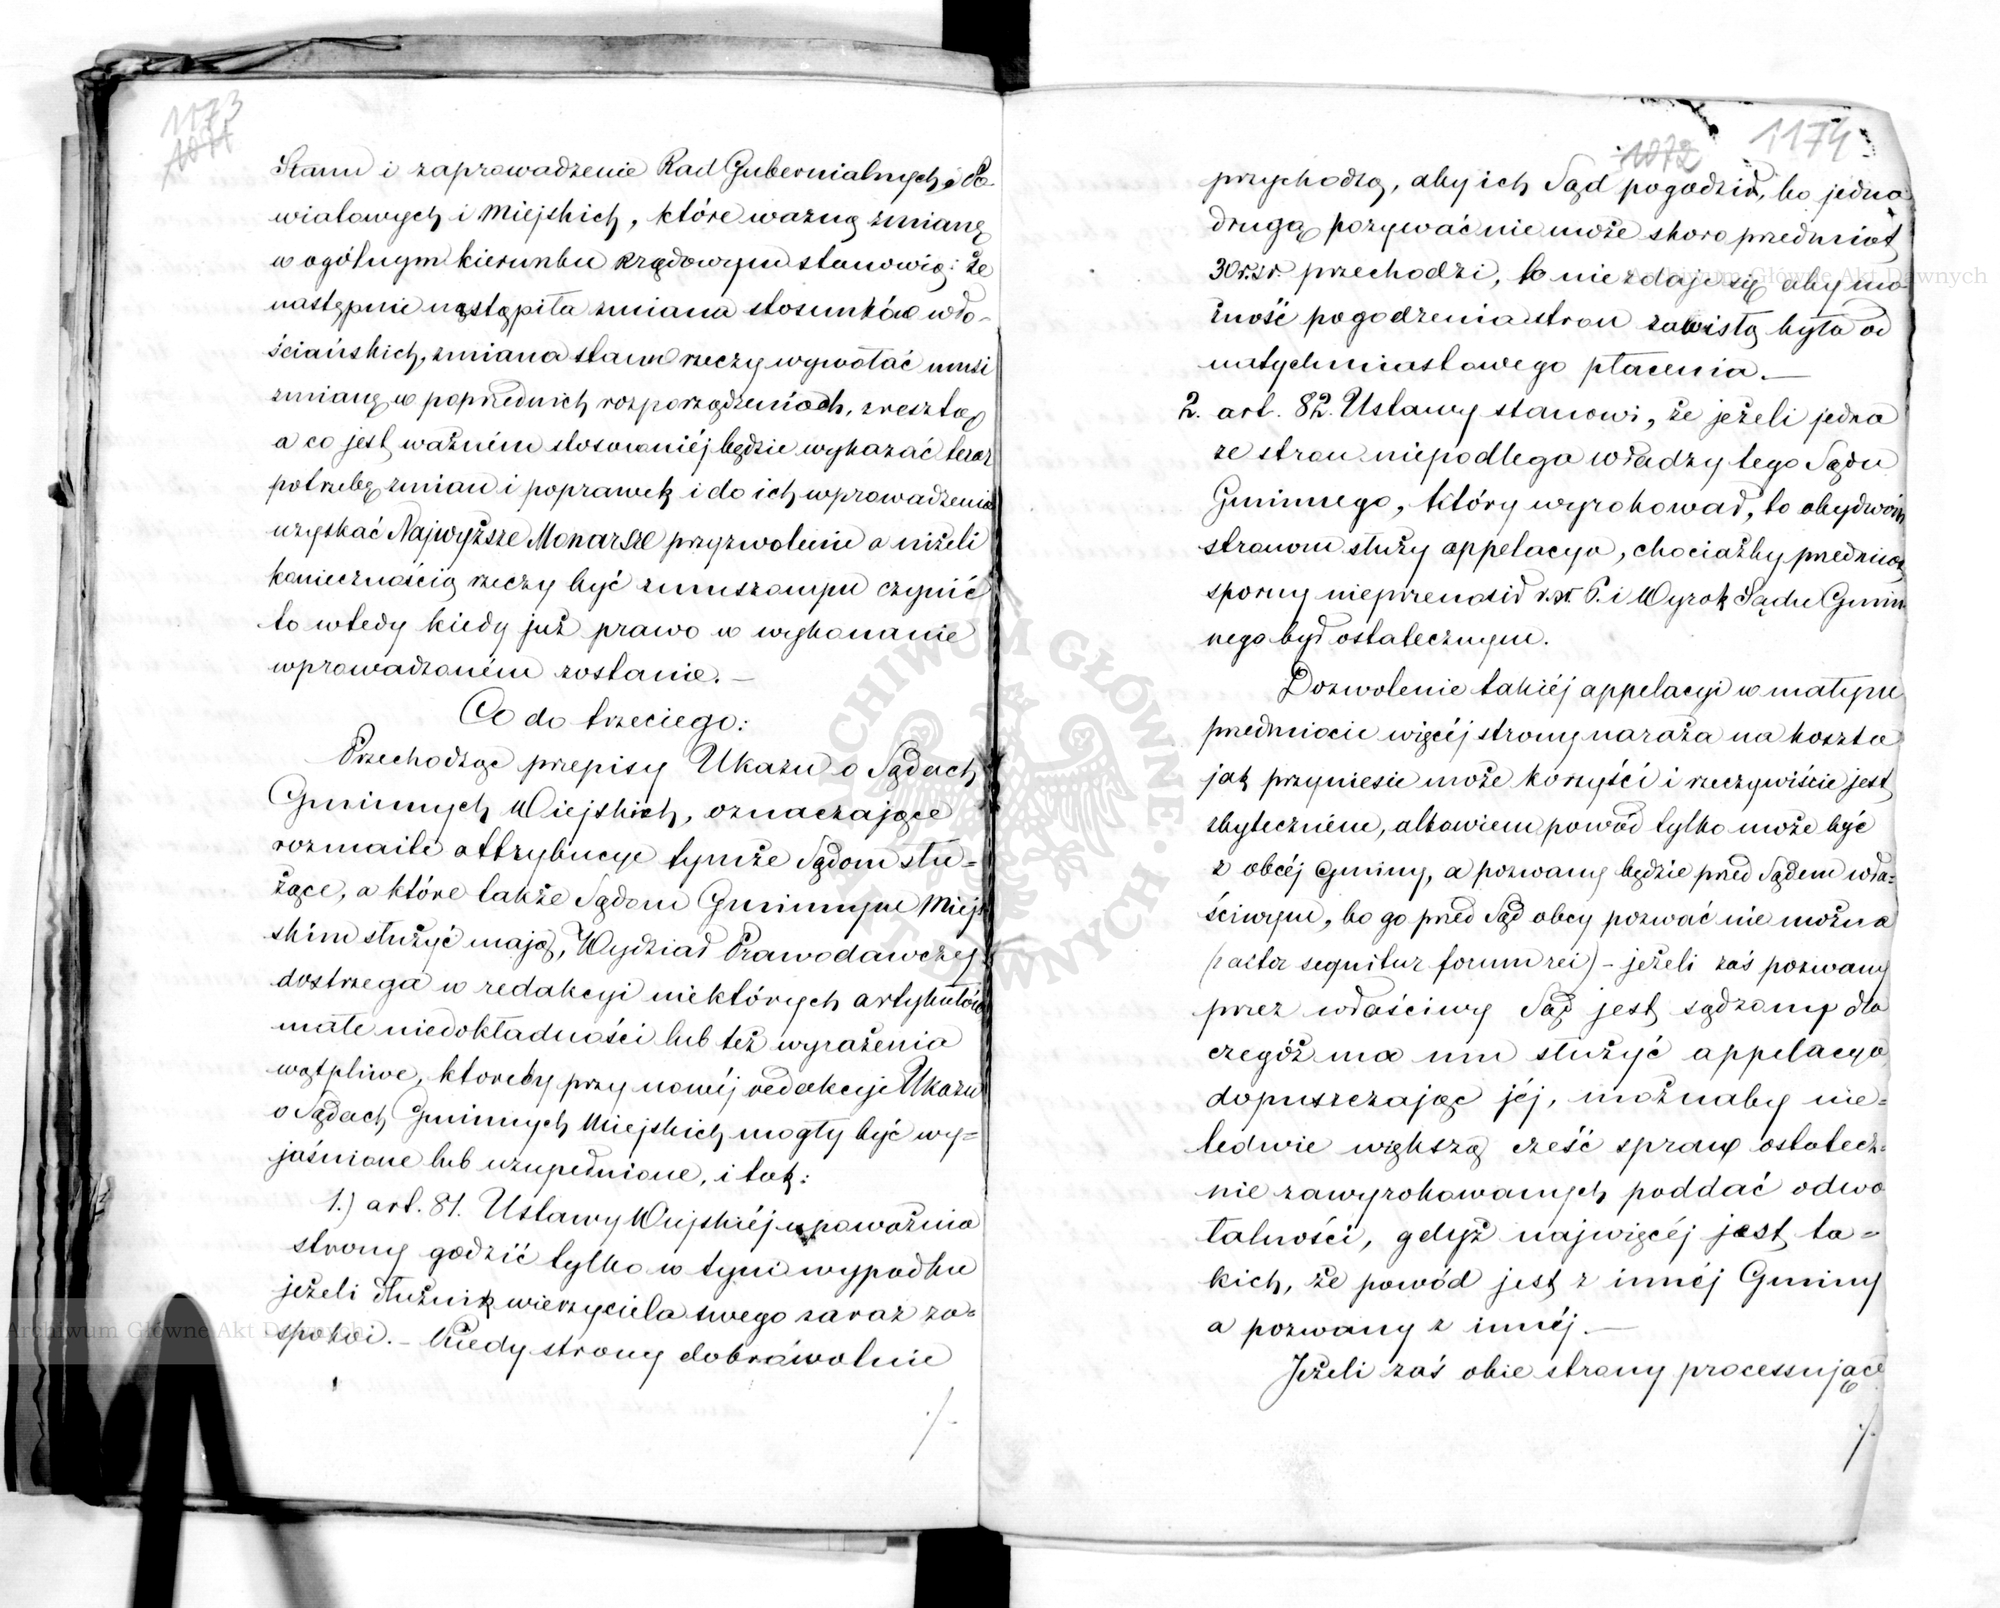 1173
1071
Stanu i zaprowadzenie Rad Gubernialnych, Po-
wiatowych i Miejskich, które ważną zmianę
w ogólnym kierunku rządowym stanowią; że
następnie nastąpiła zmiana stosunków wło-
ściańskich, zmiana stanu rzeczy wywołać musi
zmianę w poprzednich rozporządzeniach, zresztą
a co jest ważném stosowniéj będzie wykazać teraz
potrzebę zmian i poprawek i do ich wprowadzenia
uzyskać Najwyższe Monarsze przyzwolenie aniżeli
koniecznością rzeczy być zmuszonym czynić
to wtedy kiedy już prawo w wykonanie
wprowadzoném zostanie. —
Co do trzeciego:
Przechodząc przepisy Ukazu o Sądach
Gminnych Wiejskich, oznaczające
rozmaite attrybucye tymże Sądom słu-
żące, a które także Sądom Gminnym Miej-
skim służyć mają, Wydział Prawodawczy
dostrzega w redakcyi niektórych artykułów
małe niedokładności lub też wyrażenia
wątpliwe, któreby przy nowéj redakcyi Ukazu
o Sądach Gminnych Miejskich mogły być wy-
jaśnione lub uzupełnione, i tak:
1.) art. 81. Ustawy Wiejskiéj upoważnia
strony godzić tylko w tym wypadku
jeżeli dłużnik wierzyciela swego zaraz za-
spokoi. - Kiedy strony dobrowolnie
./.
1072 1174
przychodzą, aby ich Sąd pogodził, bo jedna
drugą pozywać nie może skoro przedmiot
30 r.sr. przechodzi, to nie zdaje się aby mo
żność pogodzenia stron zawisłą była od
natychmiastowego płacenia. —
2. art. 82. Ustawy stanowi, że jeżeli jedna
ze stron niepodlega władzy tego Sądu
Gminnego, który wyrokował, to obydwóm
stronom służy appelacya, chociażby przedmiot
sporny nieprzenosił r.sr. 6. i Wyrok Sądu Gmin
nego był ostatecznym.
Dozwolenie takiéj appelacyi w małym
przedmiocie więcéj strony naraża na koszta
jak przyniesie może korzyści i rzeczywiście jest
zbyteczném, albowiem powód tylko może być
z obcéj Gminy, a pozwany będzie przed Sądem wła-
ściwym, bo go przed Sąd obcy pozwać nie można
(actor sequitur forum rei) - jeżeli zaś pozwany
przez właściwy Sąd jest sądzony dla
czegóż ma mu służyć appelacya,
dopuszczając jéj, możnaby nie-
ledwie większą cześć spraw ostatecz-
nie zawyrokowanych poddać odwo
łalności, gdyż najwięcéj jest ta-
kich, że powód jest z innéj Gminy
a pozwany z innéj. —
Jeżeli zaś obie strony processujące
./.
Archiwum Główne Akt Dawnych
Archiwum Główne Akt Dawnych
ARCHIWUM GŁÓWNE AKT DAWNYCH